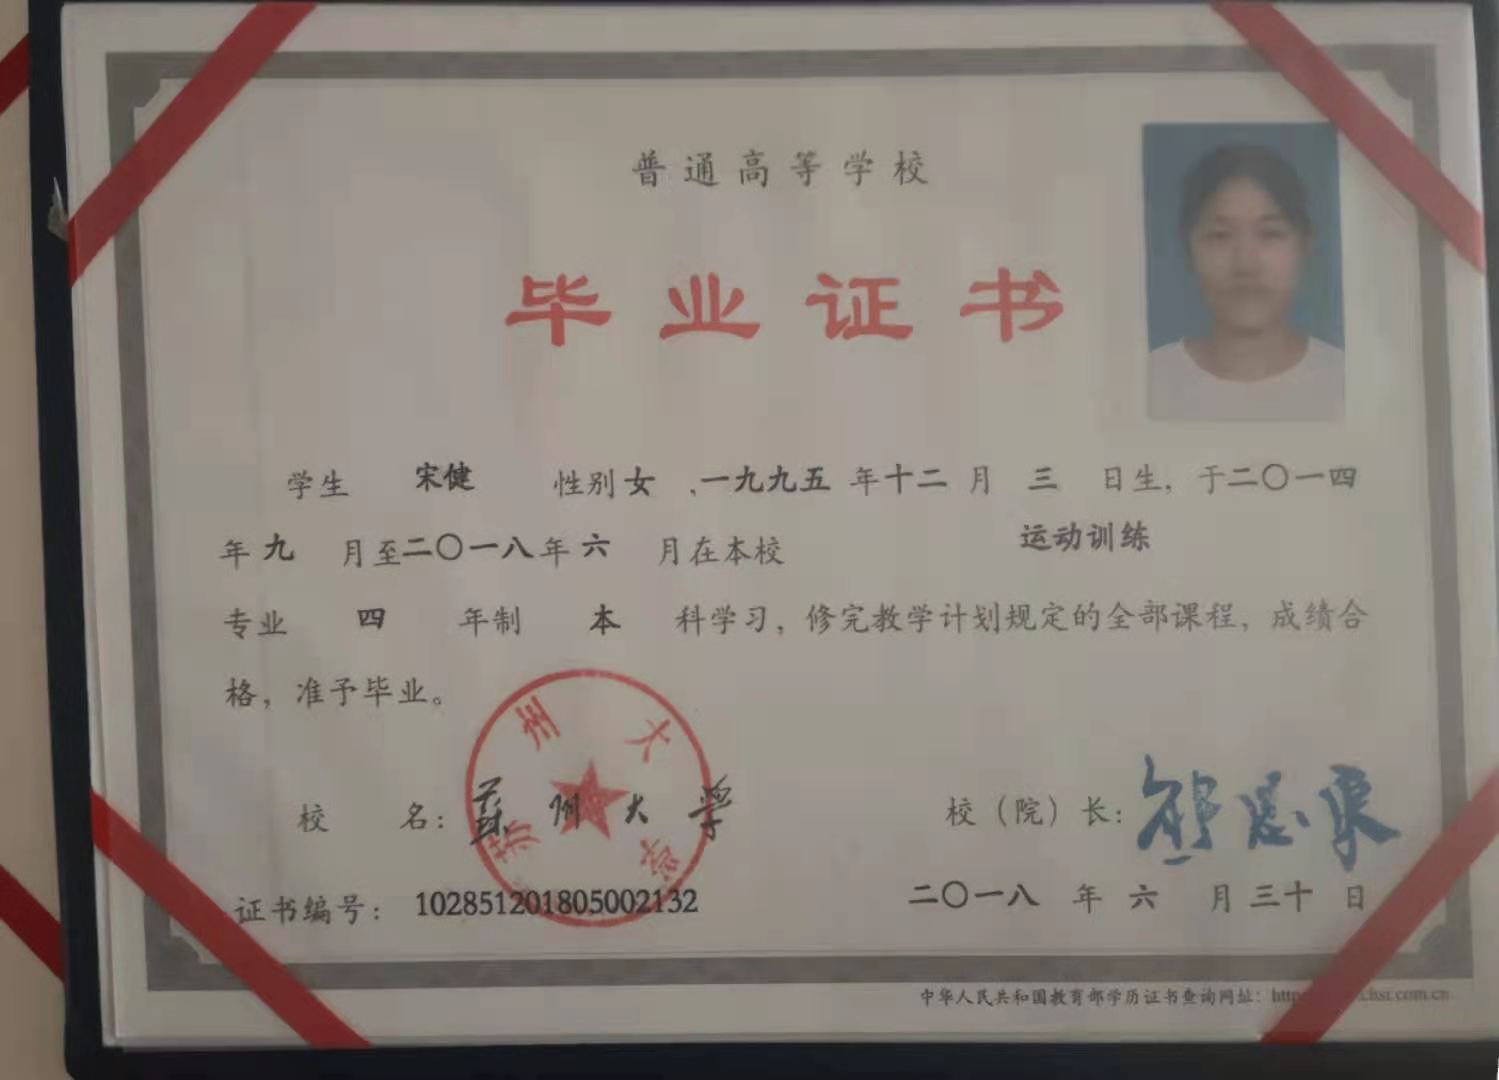 普通高等学校
毕业证书
学生 宋健 性别 女 、一九九五 年 十二 月 三 日生，于二〇一四
年 九 月至二〇一八年 六 月在本校 运动训练
专业 四 年制 本 科学习，修完教学计划规定的全部课程，成绩合
格，准予毕业。
苏州大学
校 名：蘇州大学
校（院）长：
证书编号：102851201805002132
二〇一八 年 六 月 三十 日
中华人民共和国教育部学历证书查询网址：http .chsi.com.cn